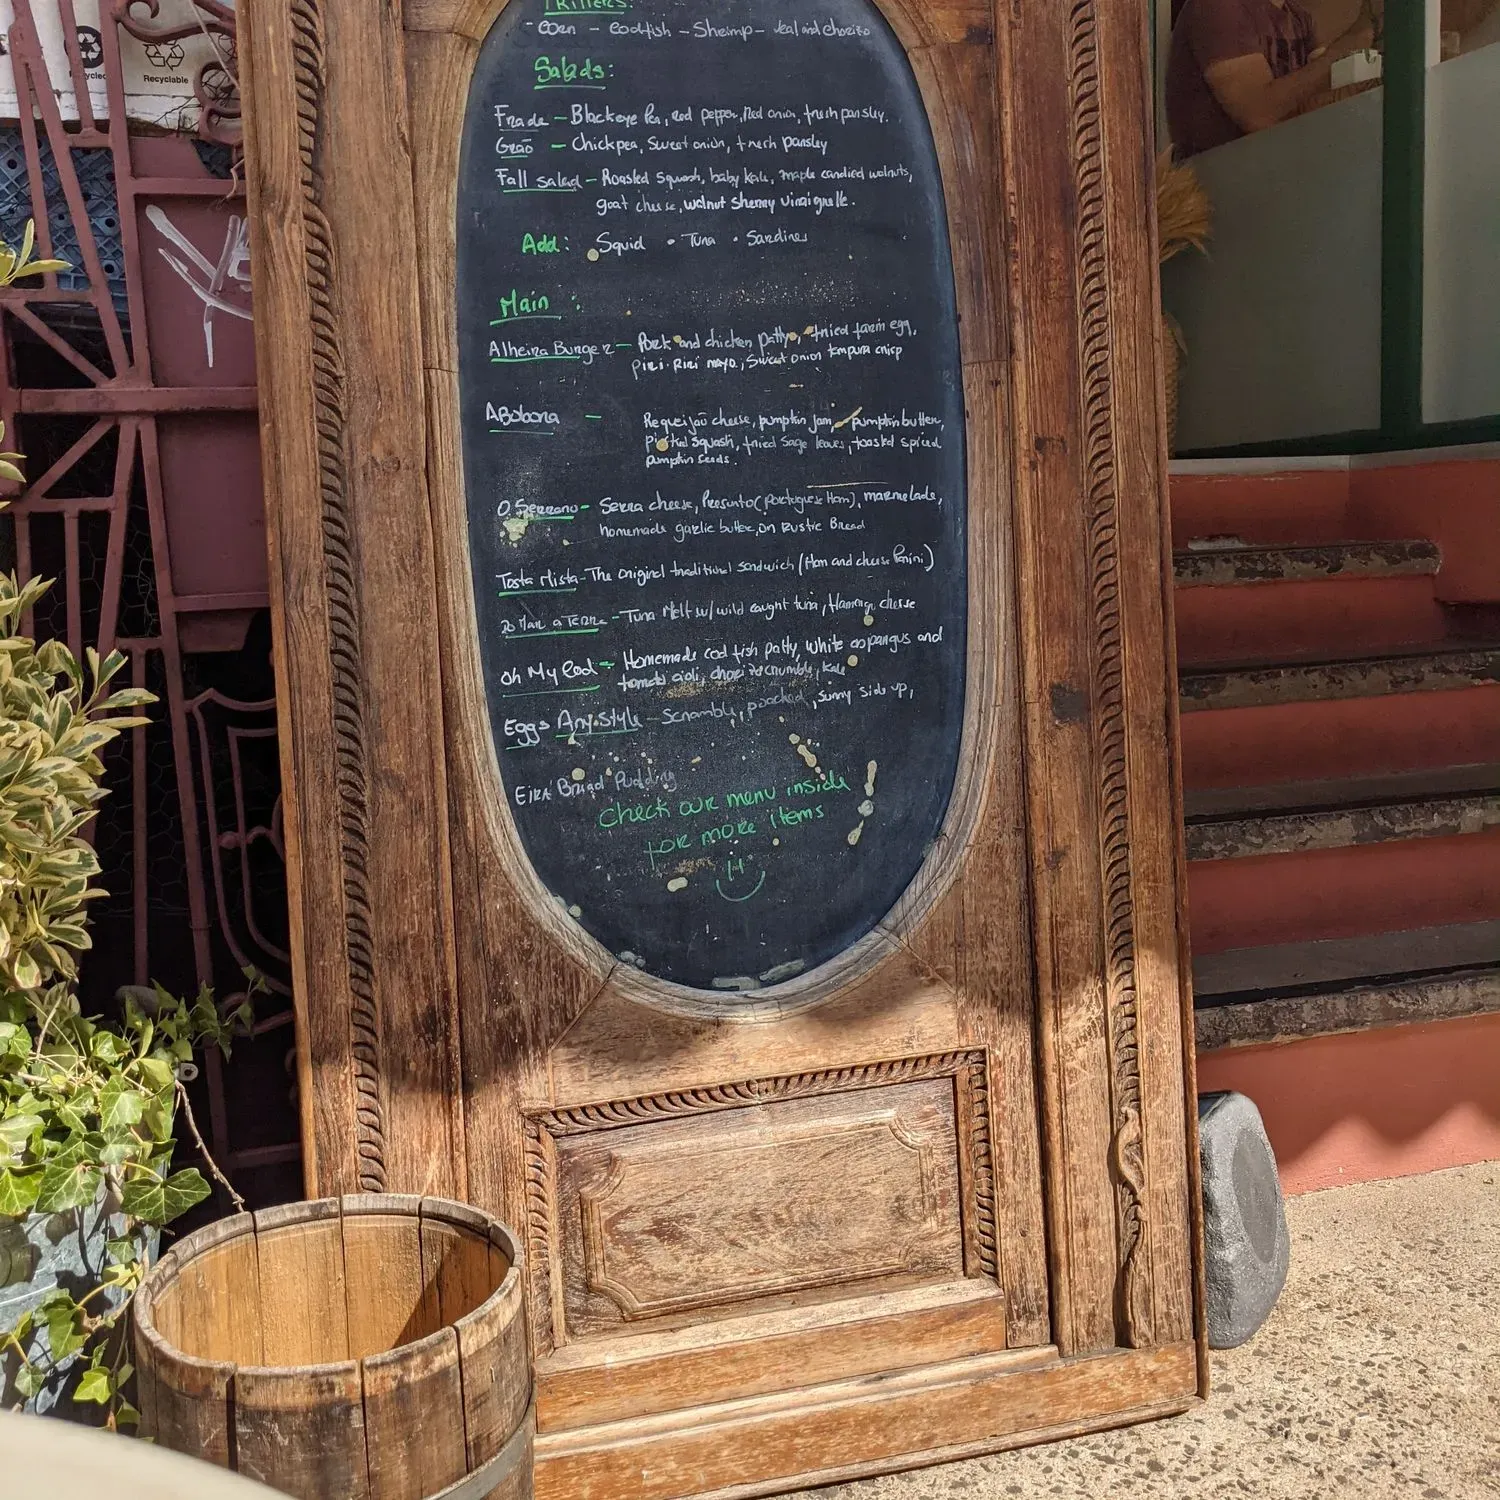 Recyclable
Corn - Codfish - Shrimp - Veal and chorizo
Salads:
Frade - Blackeye Pea, red pepper, Red onion, fresh parsley.
Grão - Chickpea, Sweet onion, fresh parsley
Fall salad - Roasted squash, baby kale, maple candied walnuts,
goat cheese, walnut sherry vinaigrette.
Add: Squid • Tuna • Sardines
Main :
Alheira Burger - Pork and chicken patty, fried farm egg,
piri-Piri mayo, Sweet onion tempura crisp
ABobora - Requeijão cheese, pumpkin jam, pumpkin butter,
squash, fried sage leaves, toasted spiced
pumpkin seeds.
O Serrano - Serra cheese, Presunto (Portuguese Ham), marmelade,
homemade garlic butter, on Rustic Bread
Tosta Mista - The original traditional sandwich (Ham and cheese Panini)
Do Mar a Terra - Tuna Melt w/ wild caught tuna, flamengo cheese
Oh My Cod - Homemade cod fish patty, white asparagus and
tomato aioli, chorizo crumble, kale
Eggs Any Style - Scramble, poached, sunny side up,
Eira Bread Pudding
Check our menu inside
for more items